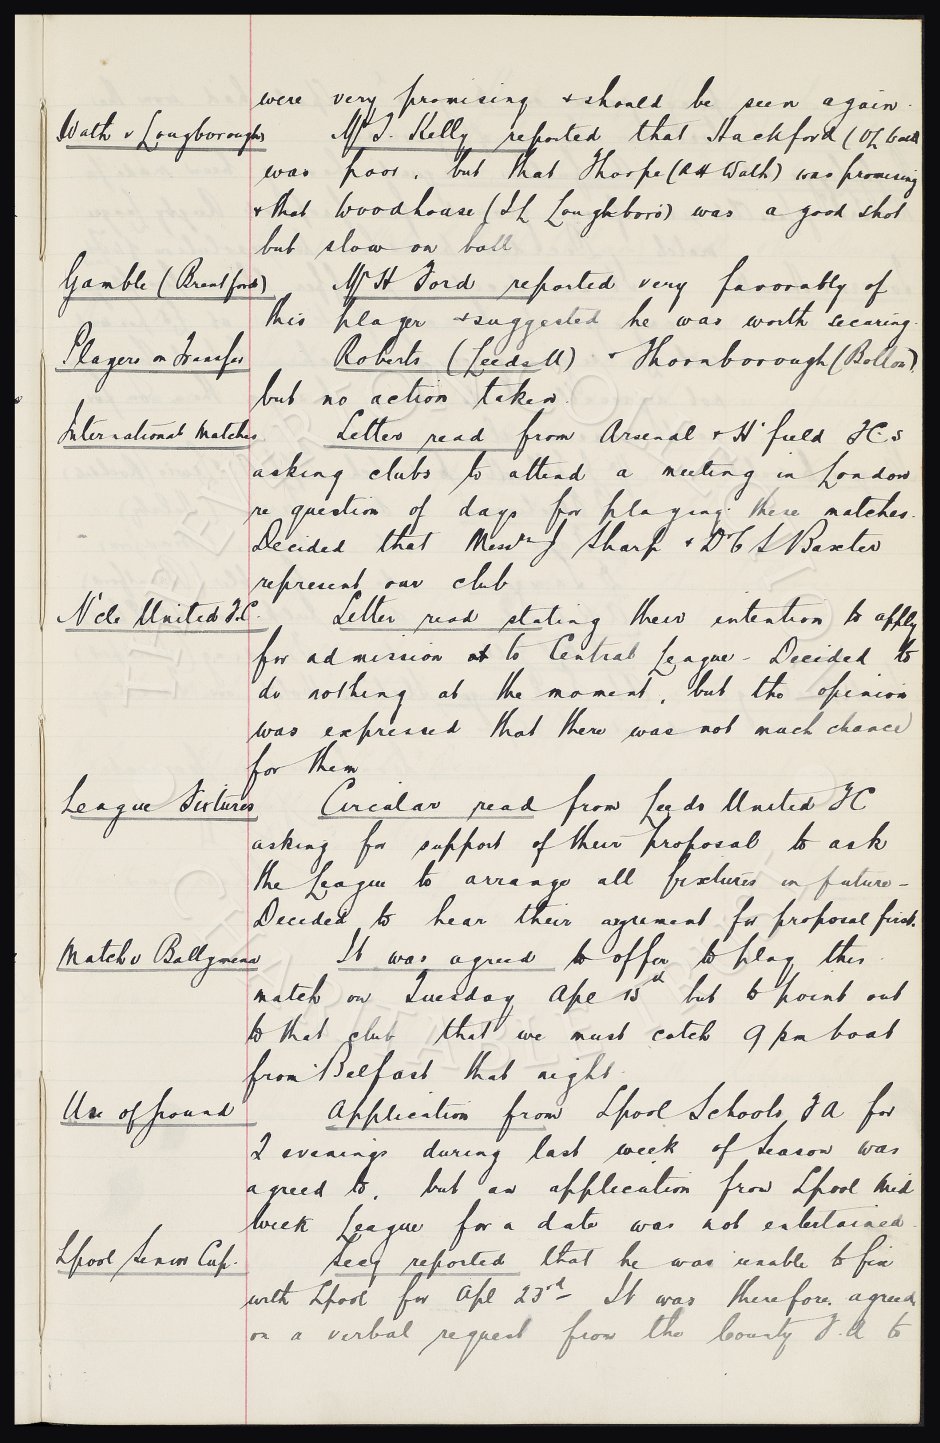 were very promising & should be seen again.
Wath v Loughborough Mr J. Kelly reported that Hackford (OL Wath)
was poor, but that Thorpe (RH Wath) was promising
& that Woodhouse (IL Loughboro') was a good shot
but slow on ball
Gamble (Brentford) Mr H Ford reported very favorably of
this player & suggested he was worth securing.
Players on Transfer Roberts (Leeds U) & Thornborough (Bolton)
but no action taken.
International Matches. Letter read from Arsenal & H'field FCs
asking clubs to attend a meeting in London
re question of days for playing these matches.
Decided that Messrs J Sharp & Dr C S Baxter
represent our club
N'cle United F.C. Letter read stating their intention to apply
for admission to Central League - Decided to
do nothing at the moment, but the opinion
was expressed that there was not much chance
for them
League Fixtures Circular read from Leeds United FC
asking for support of their proposal to ask
the League to arrange all fixtures in future -
Decided to hear their agrument for proposal first.
Match v Ballymena It was agreed to offer to play this
match on Tuesday Apl 15th but to point out
to that club that we must catch 9 pm boat
from Belfast that night.
Use of ground Application from Lpool Schools F A for
2 evenings during last week of Season was
agreed to, but an application from Lpool Mid
Week League for a date was not entertained.
Lpool Senior Cup. Secy reported that he was unable to fix
with Lpool for Apl 23rd - It was therefore, agreed,
on a verbal request from the County F.A to